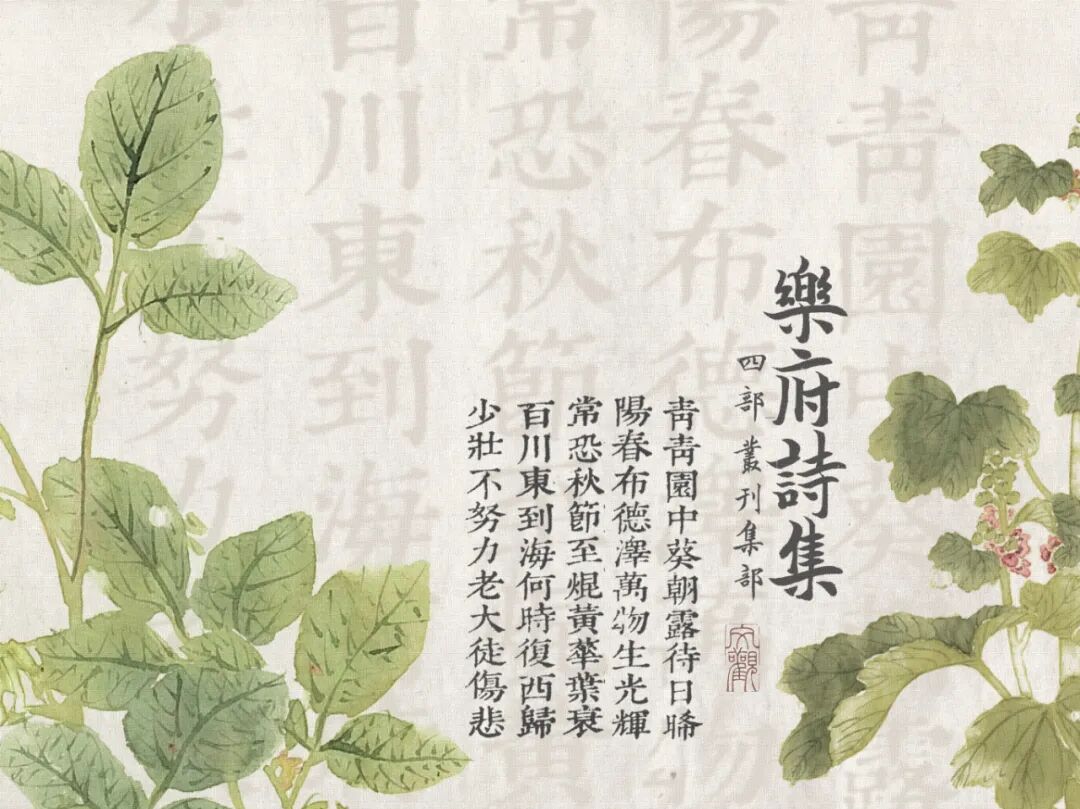 樂府詩集
四部叢刊集部
文觀
青青園中葵朝露待日晞
陽春布德澤萬物生光輝
常恐秋節至焜黃華葉衰
百川東到海何時復西歸
少壯不努力老大徒傷悲